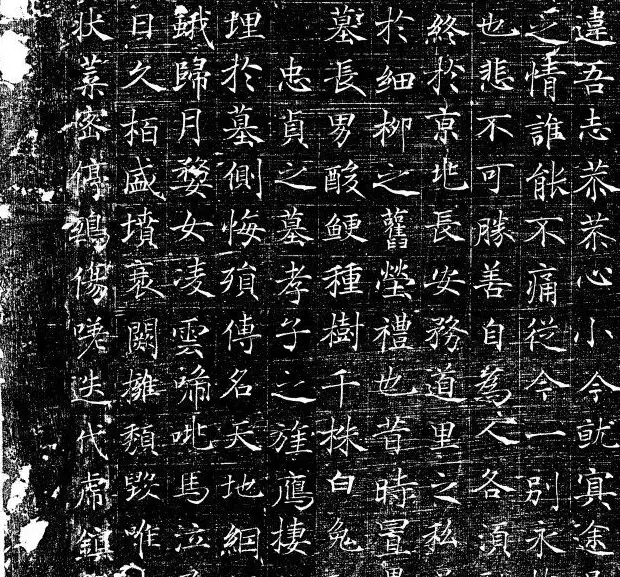 違吾志恭恭心小今就冥途
之情誰能不痛從今一別永
也悲不可勝善自為人各須
終於京兆長安務道里之私
於細柳之舊塋禮也昔時置
墓長男酸鯁種樹千株白兔
忠貞之墓孝子之旌鴈棲
埋於墓側悔須傳名天地絪
鋨歸月婺女凌雲啼咷馬泣
日久栢盛墳衰闕摧頹毀唯
狀葉密停鵶傷嗟迭代席鎮